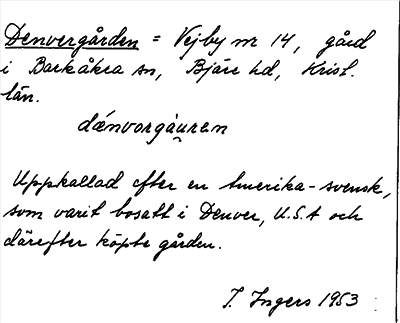 Denvergården = Vejby nr 14, gård
i Barkåkra sn, Bjäre hd, Krist.
län.
dǽnvorgåu̯ren
Uppkallad efter en Amerika-svensk,
som varit bosatt i Denver, U.S.A och
därefter köpte gården.
I. Ingers 1953